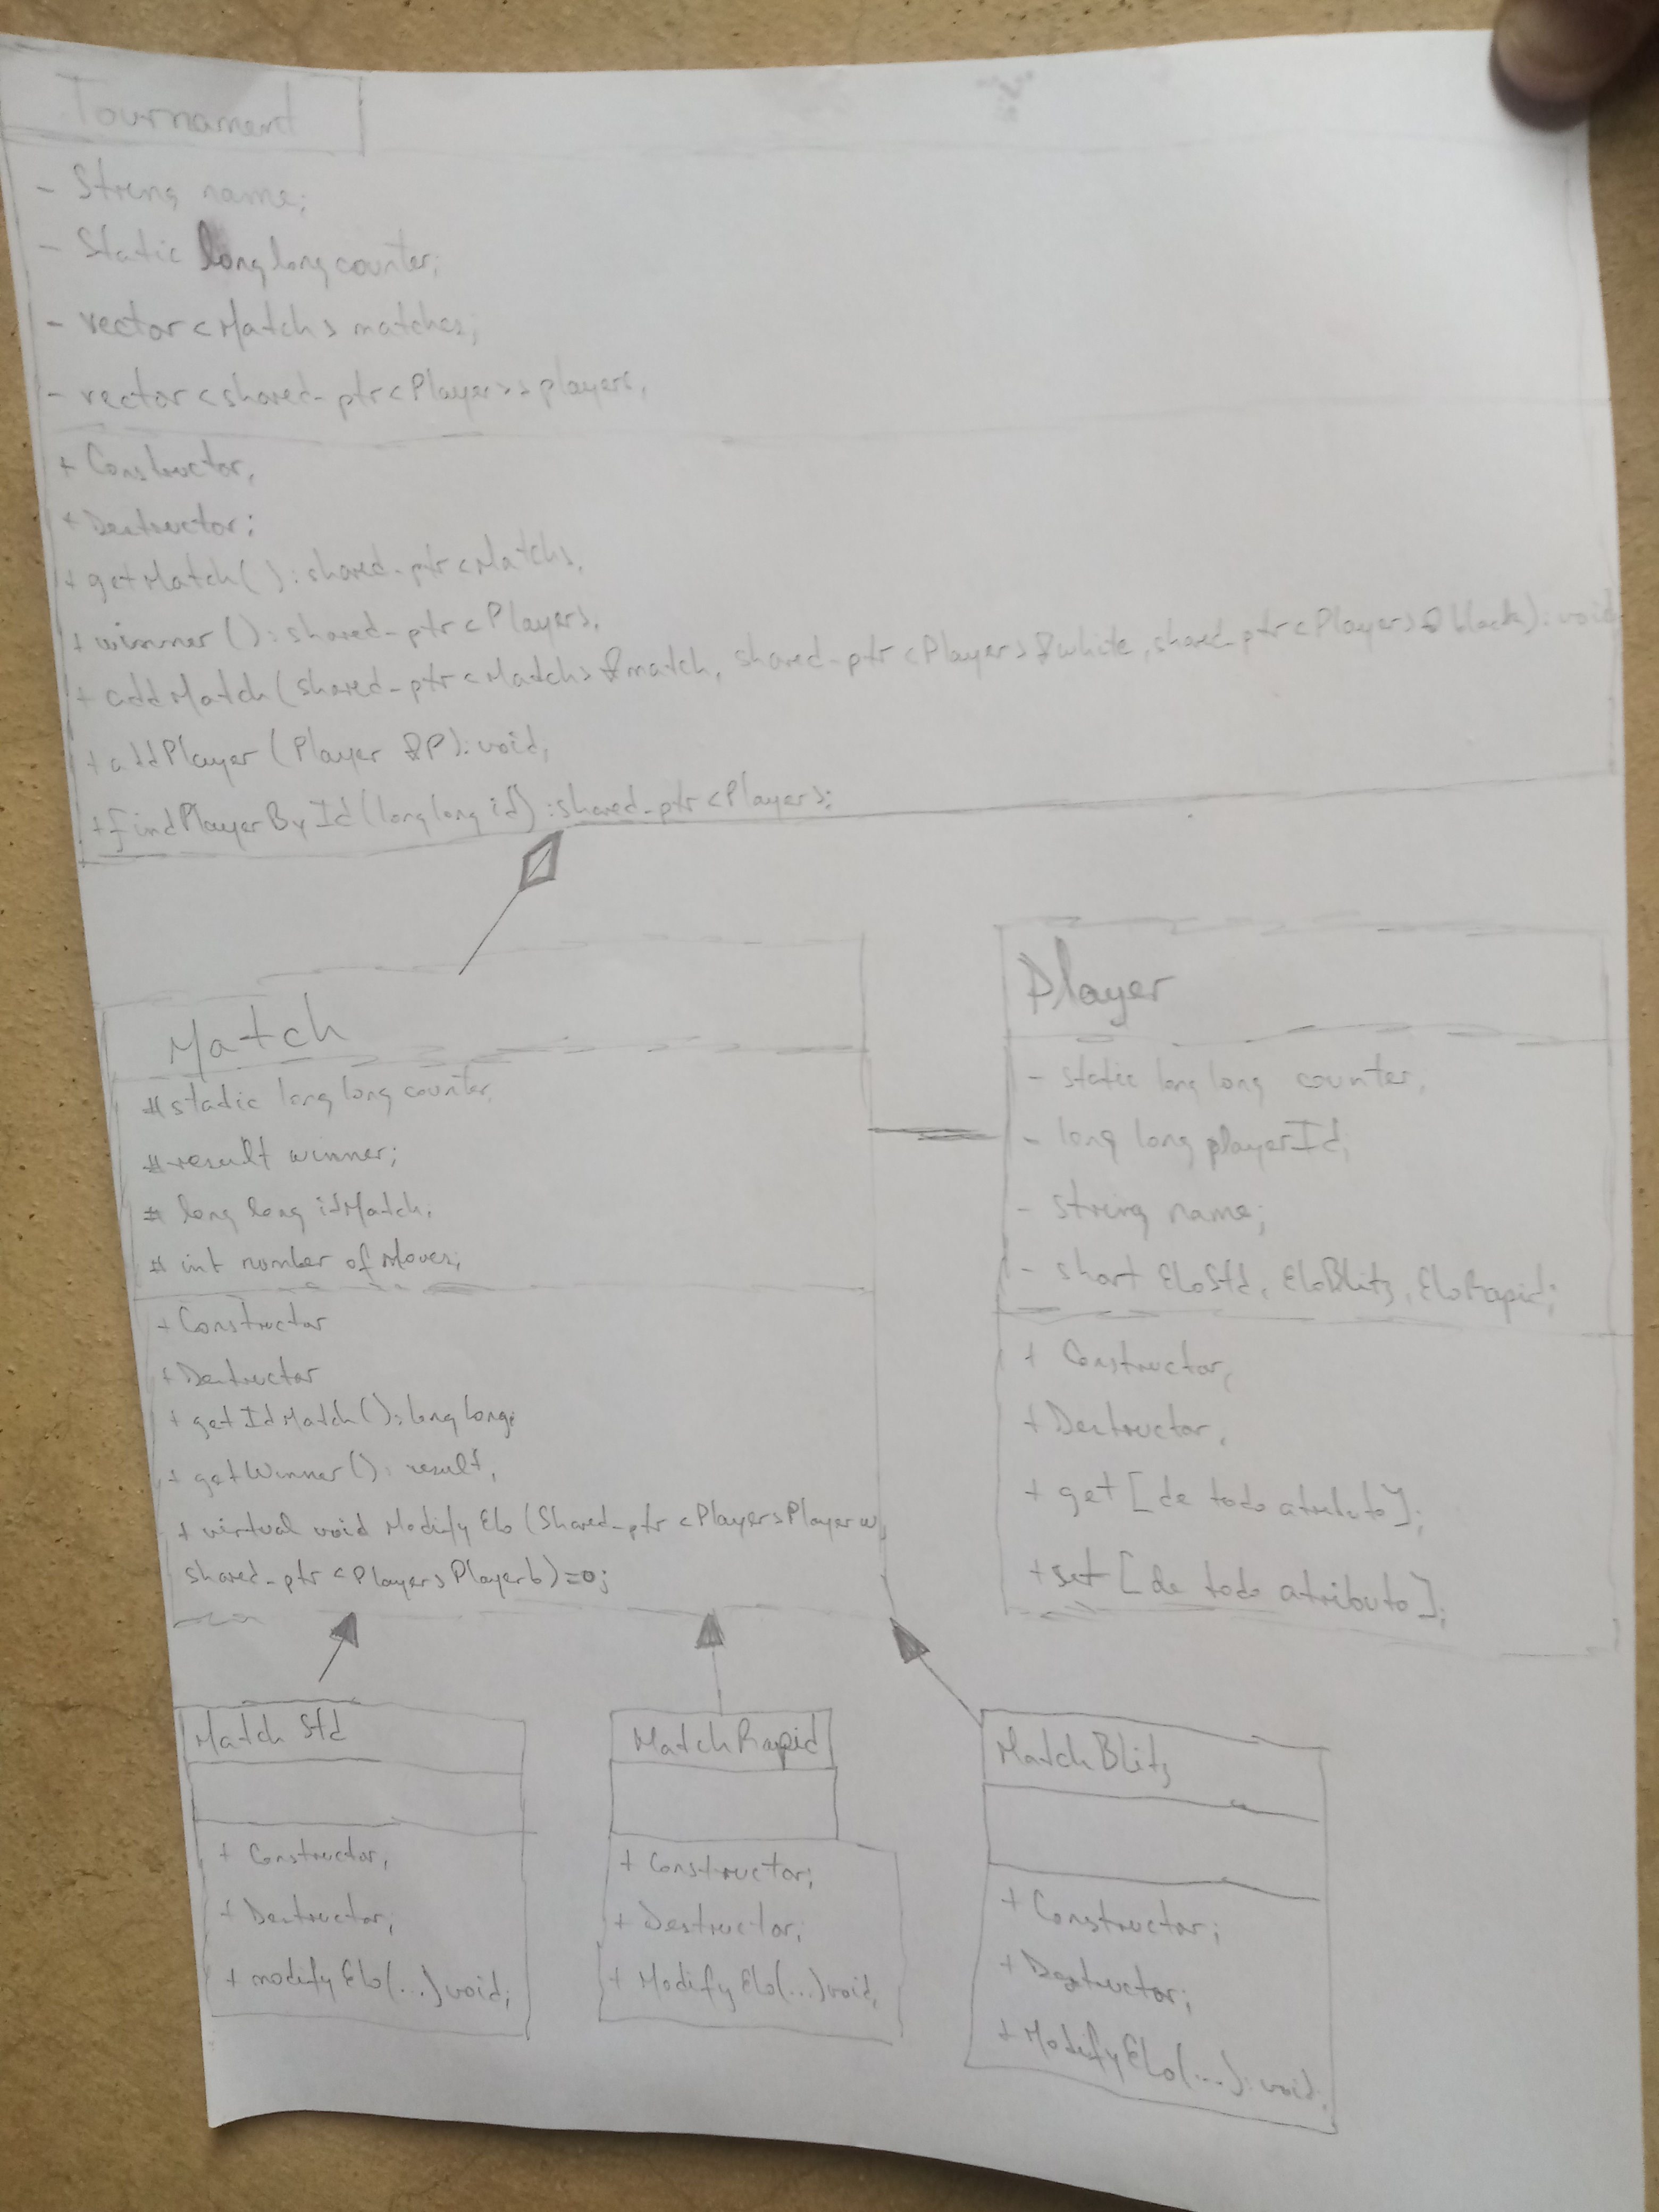 Tournament
- String name;
- Static long long counter;
- vector<Match> matches;
- vector<shared_ptr<Player>> players;
+ Constructor;
+ Destructor;
+ getMatch(): shared_ptr<Match>;
+ winner(): shared_ptr<Player>;
+ addMatch(shared_ptr<Match> &match, shared_ptr<Player> &white, shared_ptr<Player> & black): void
+ addPlayer (Player &P): void;
+ findPlayerById(long long id): shared_ptr<Player>;
Match
# static long long counter;
# result winner;
# long long idMatch;
# int number of Moves;
+ Constructor
+ Destructor
+ getIdMatch(): long long;
+ getWinner(): result;
+ virtual void Modify Elo (Shared_ptr<Player> Player w,
shared_ptr<Player> Player b)=0;
Player
- static long long counter;
- long long playerId;
- string name;
- short EloStd, EloBlitz, EloRapid;
+ Constructor;
+ Destructor;
+ get [de todo atributo];
+ set [de todo atributo];
Match Std
+ Constructor;
+ Destructor;
+ modifyElo(...) void;
MatchRapid
+ Constructor;
+ Destructor;
+ ModifyElo(...) void;
MatchBlitz
+ Constructor;
+ Destructor;
+ ModifyElo(...): void;